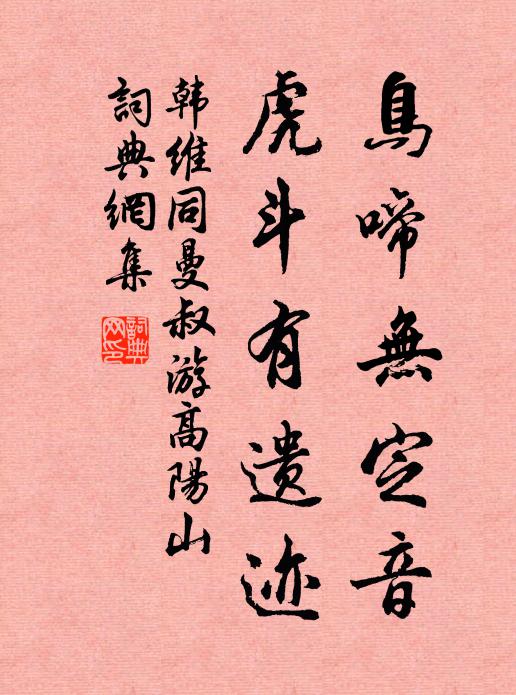 鳥啼無定音
虎斗有遗迹
韩维同曼叔游高陽山
詞典網集
詞典网印